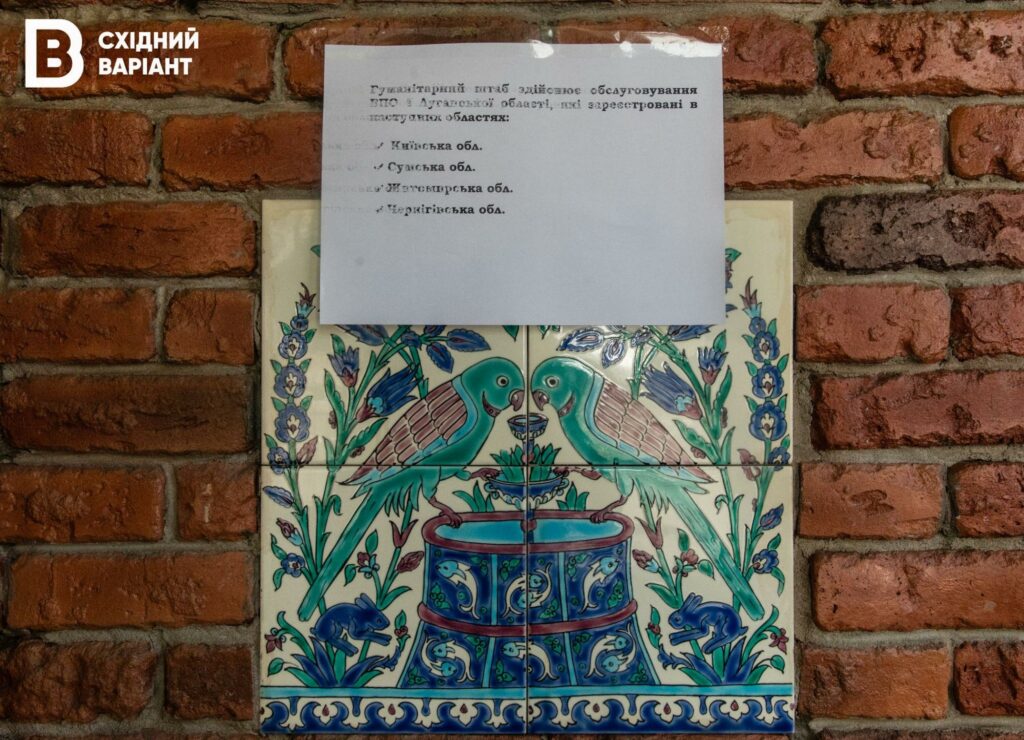 СХІДНИЙ
ВАРІАНТ
Гуманітарний штаб здійснює обслуговування
ВПО з Луганської області, які зареєстровані в
наступних областях:
✓ Київська обл.
✓ Сумська обл.
✓ Житомирська обл.
✓ Чернігівська обл.